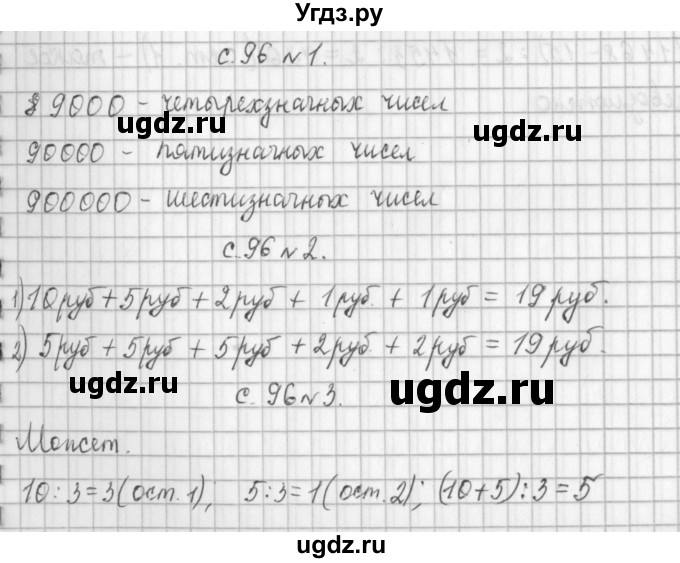 Угдз.ру
с. 96 № 1.
9000 - четырехзначных чисел
ugdz.ru ugdz.ru
90000 - пятизначных чисел
900000 - шестизначных чисел
с. 96 № 2.
1) 10 руб + 5 руб + 2 руб + 1 руб. + 1 руб = 19 руб.
2) 5 руб + 5 руб + 5 руб + 2 руб + 2 руб = 19 руб.
ugdz.ru ugdz.ru
с. 96 № 3.
Может.
10 : 3 = 3 (ост. 1); 5 : 3 = 1 (ост. 2); (10 + 5) : 3 = 5
ugdz.ru